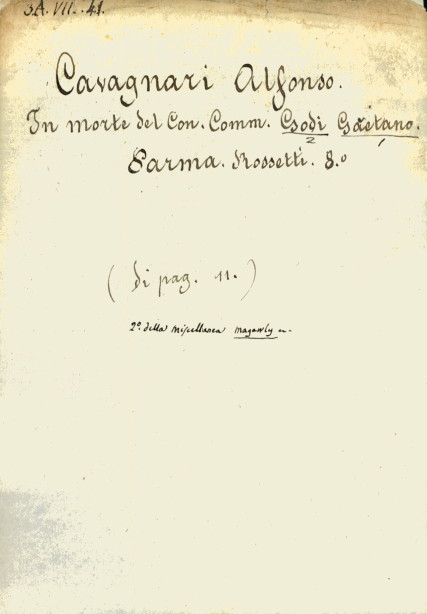 3A. VII. 41.
Cavagnari Alfonso.
In morte del Con. Comm. Godi Gaetano.
2 1
Parma. Rossetti. 8.º
( di pag. 11. )
2º della miscellanea magawly